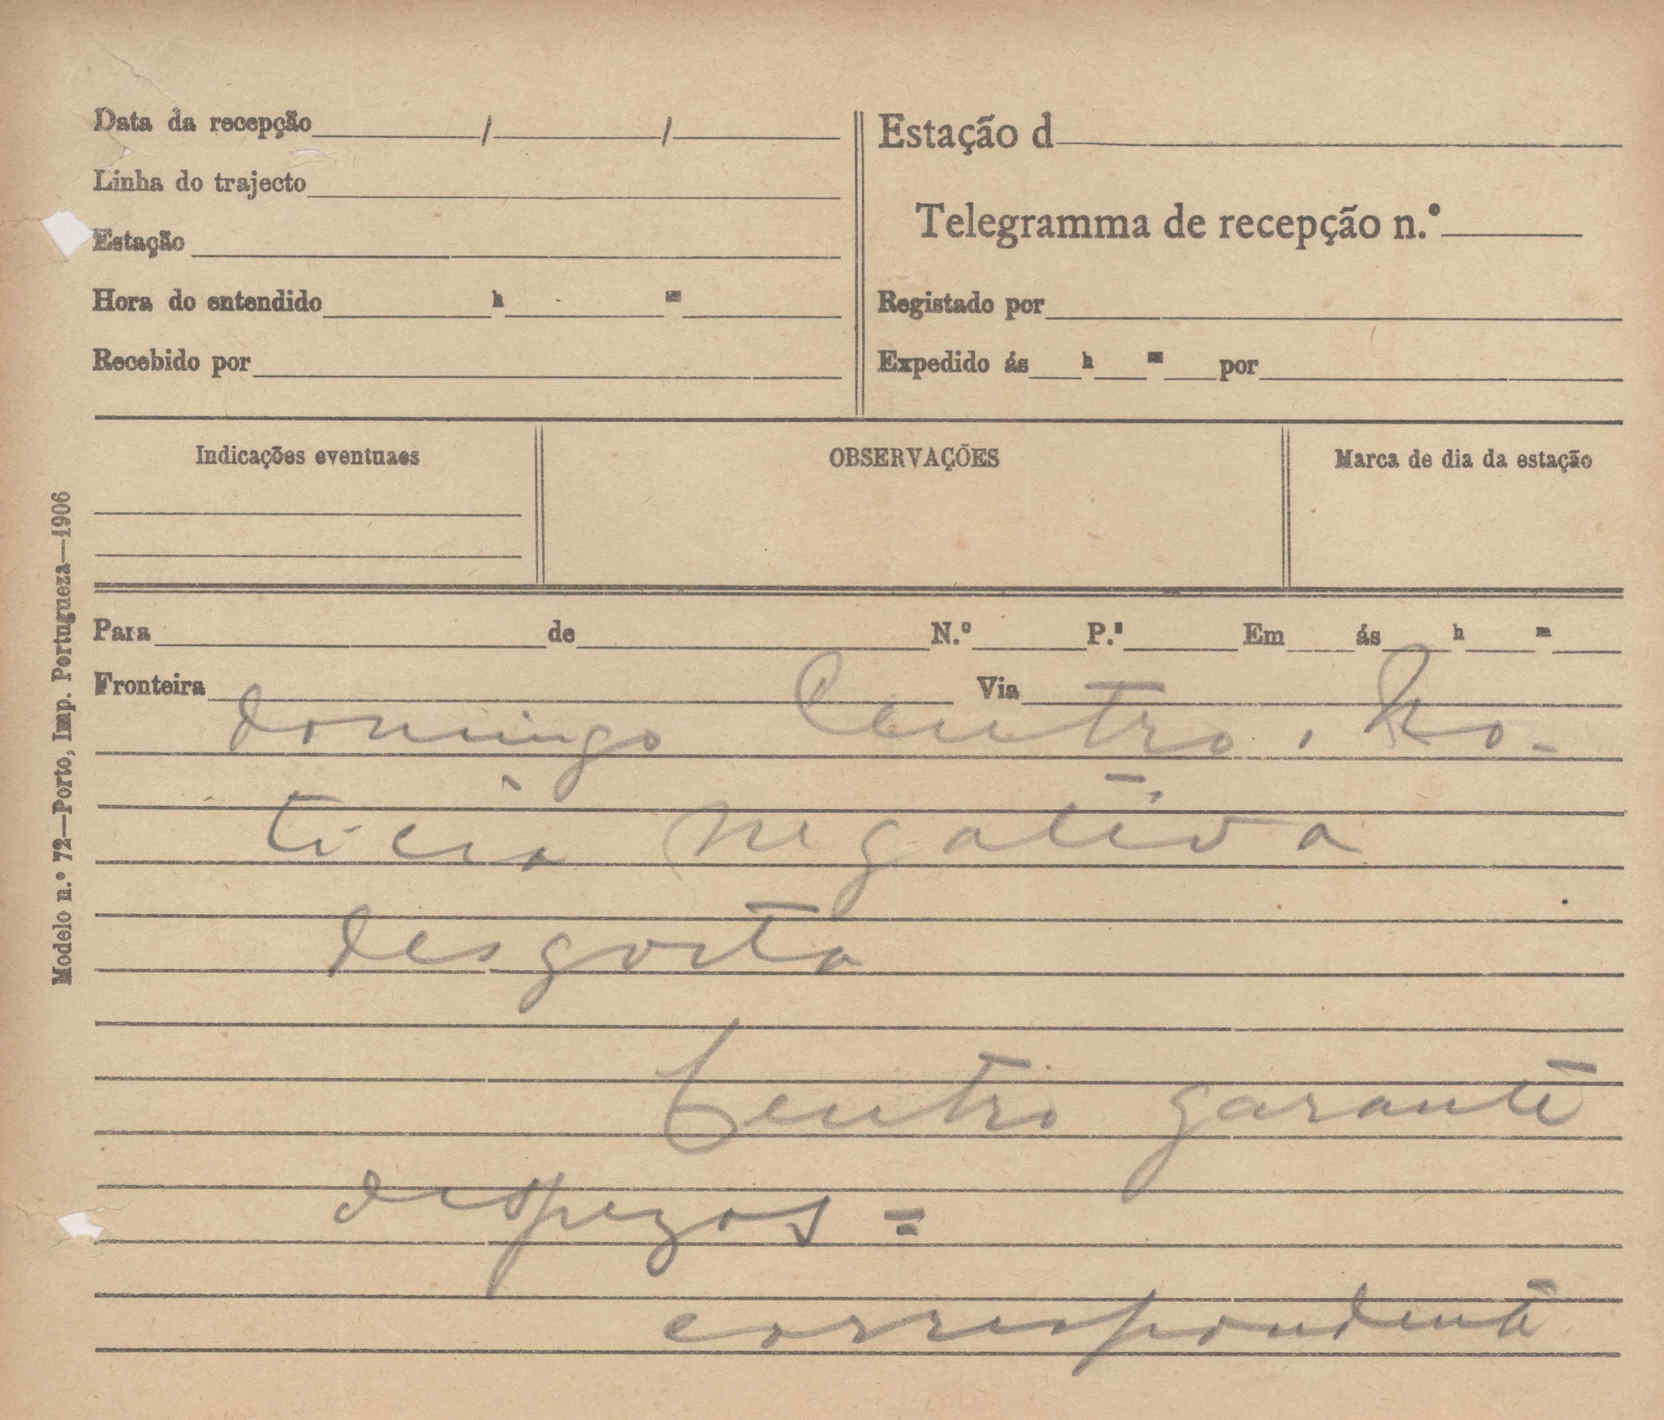 Data da recepção / /
Linha do trajecto
Estação
Hora do entendido h m
Recebido por
Estação d
Telegramma de recepção n.º
Registado por
Expedido ás h m por
Indicações eventuaes
OBSERVAÇÕES
Marca de dia da estação
Modelo n.º 72—Porto, Imp. Portugueza—1906
Para de N.º P.ª Em ás h m
Fronteira Via
domingo Centro. No-
ticia negativa
desgosta
Centro garante
despezas =
correspondente